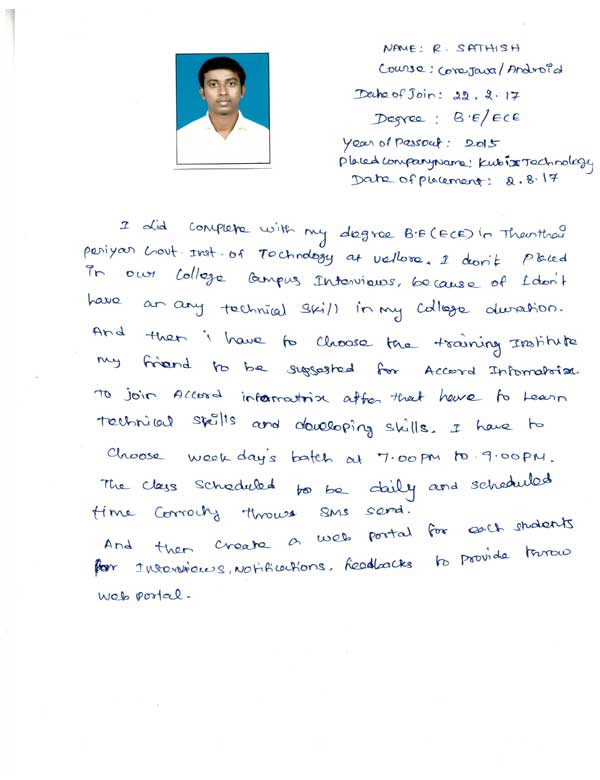 NAME: R. SATHISH
Course: Core Java/Android
Date of Join: 22.2.17
Degree: B.E/ECE
Year of Passout: 2015
Placed Company Name: Kubix Technology
Date of placement: 2.8.17
I did complete with my degree B.E(ECE) in Thanthai
periyar Govt. Inst. of Technology at vellore. I don't placed
in our college Campus Interviews, because of I don't
have an any technical skill in my college duration.
And then i have to choose the training Institute
my friend to be suggested for Accord Infomatrix.
To join Accord infomatrix after that have to Learn
technical skills and developing skills. I have to
choose week day's batch at 7.00 PM to 9.00 PM.
The class scheduled to be daily and scheduled
time correctly throws SMS send.
And then create a web portal for each students
for Interviews, Notifications, feedbacks to provide throw
web portal.